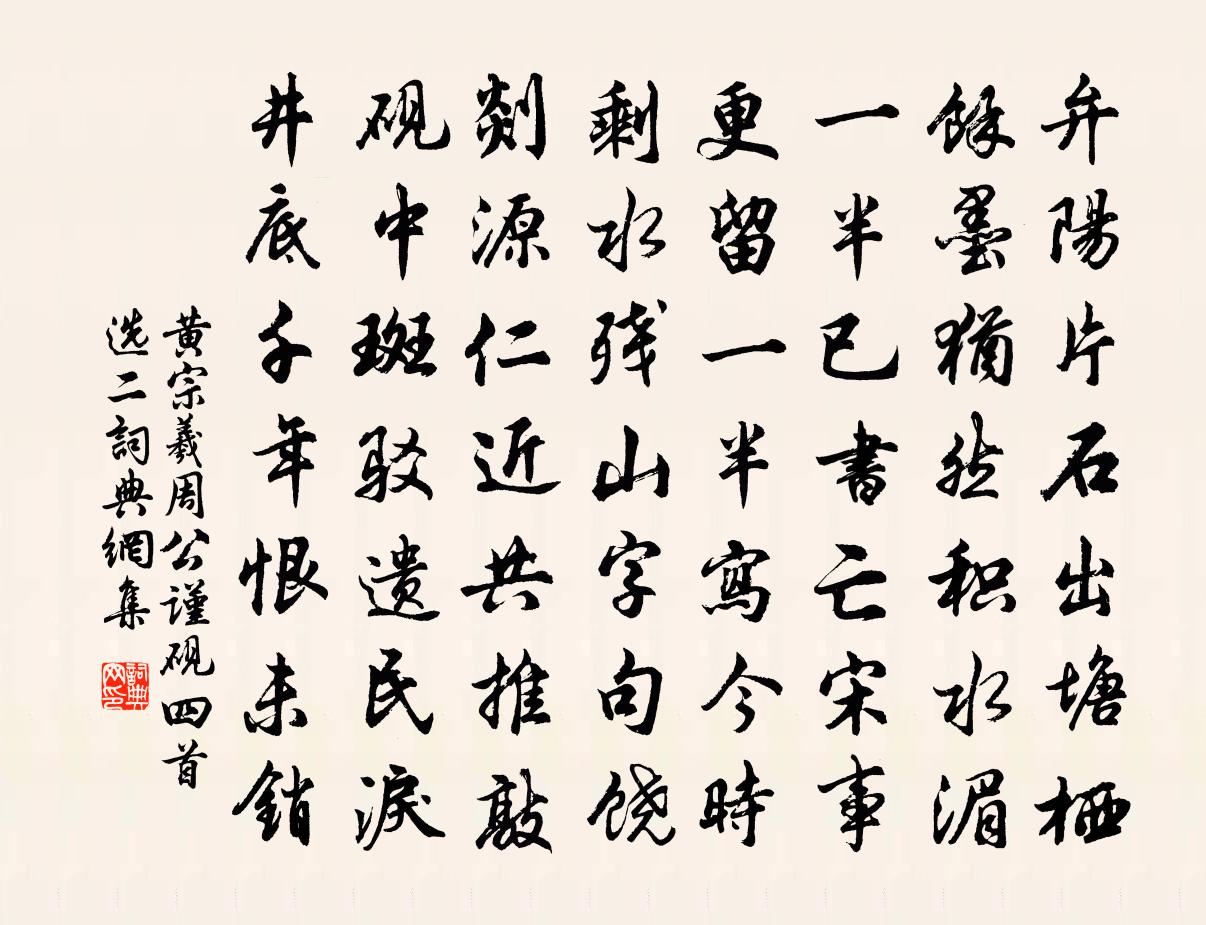 弁陽片石出塘栖
餘墨猶然积水湄
一半已書亡宋事
更留一半寫今時
剩水残山字句饶
剡源仁近共推敲
砚中斑驳遗民淚
井底千年恨未銷
黄宗羲周公谨砚四首
选二詞典網集
詞典网印